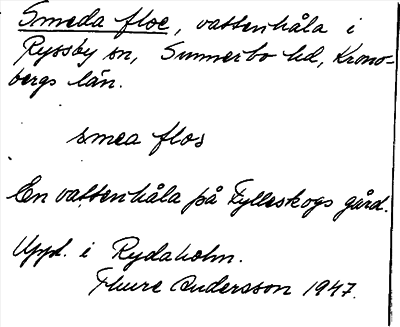 Smeda floe, vattenhåla i
Ryssby sn, Sunnerbo hd, Krono-
bergs län.
smea flos
En vattenhåla på Fylleskogs gård.
Uppt. i Rydaholm.
Thure Andersson 1947.